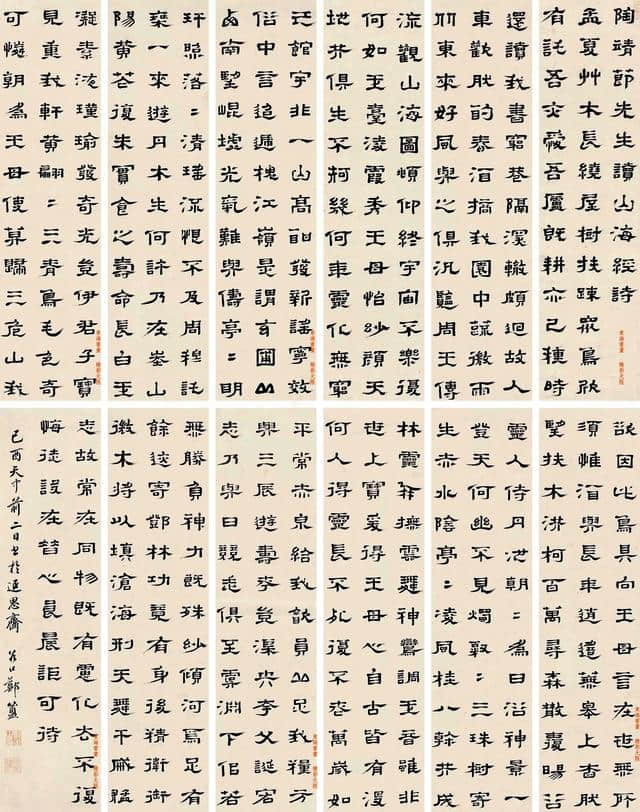 陶靖節先生讀山海經詩
孟夏艸木長繞屋樹扶疎眾鳥欣
有託吾亦愛吾廬既耕亦已種時
還讀我書窮巷隔深轍頗迴故人
車歡然酌春酒摘我園中蔬微雨
从東來好風與之俱汎覽周王傳
流觀山海圖頫仰終宇宙不樂復
何如玉臺凌霞秀王母怡妙顏天
地共俱生不柯幾何年靈化無窮
已館宇非一山高酣發新謠寧效
俗中言迢遞槐江嶺是謂玄圃丘
西南望崐墟光氣難與儔亭二明
玕照落二清瑤流恨不及周穆託
椉一來遊丹木生何許乃在峚山
陽黄花復朱實食之壽命長白玉
凝素液瑾瑜發奇光豈伊君子寶
見重我軒黄翩二三青鳥毛色奇
可憐朝為王母使暮歸三危山我
欲因此鳥具向王母言在世無所
須惟酒與長年逍遙蕪皋上杳然
望扶木洪柯百萬尋森散覆暘谷
靈人侍丹池朝二為日浴神景一
登天何幽不見燭粲二三珠樹寄
生赤水陰亭二凌風桂八榦共成
林靈鳳撫雲舞神鸞調玉音雖非
世上寶爰得王母心自古皆有沒
何人得靈長不死復不老萬歲如
平常赤泉給我飲員丘足我糧方
與三辰遊壽考豈渠央夸父誕宏
志乃與日競走俱至虞淵下佀若
無勝負神力既殊妙傾河焉足有
餘迹寄鄧林功竟在身後精衛銜
微木將以填滄海刑天舞干戚猛
志故常在同物既有慮化去不復
悔徒設在昔心良晨詎可待
己酉天中前二日書於適思齋 谷口鄭簠